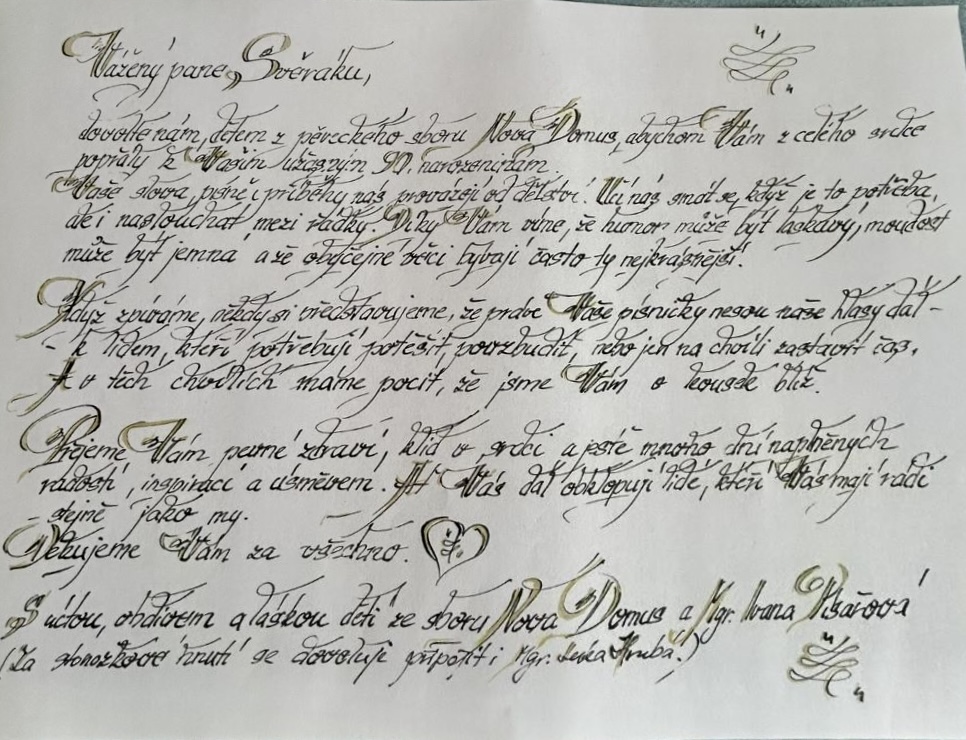 Vážený pane Svěráku,
dovolte nám, dětem z pěveckého sboru Nová Domus, abychom Vám z celého srdce
popřály k Vašim úžasným 90. narozeninám.
Vaše slova, písně i příběhy nás provázejí od dětství. Učí nás smát se, když je to potřeba,
ale i naslouchat mezi řádky. Díky Vám víme, že humor může být laskavý, moudrost
může být jemná a že obyčejné věci bývají často ty nejkrásnější.
Když zpíváme, někdy si představujeme, že právě Vaše písničky nesou naše hlasy dál -
- k lidem, kteří potřebují potěšit, povzbudit, nebo jen na chvíli zastavit čas.
A v těch chvílích máme pocit, že jsme Vám o kousek blíž.
Přejeme Vám pevné zdraví, klid v srdci a ještě mnoho dní naplněných
radostí, inspirací a úsměvem. Ať Vás dál obklopují lidé, kteří Vás mají rádi
- stejně jako my.
Děkujeme Vám za všechno.
S úctou, obdivem a láskou děti ze sboru Nová Domus a Mgr. Ivana Pisařová
(Za stonožkové hnutí se dovoluji připojit i Mgr. Lenka Hrubá.)